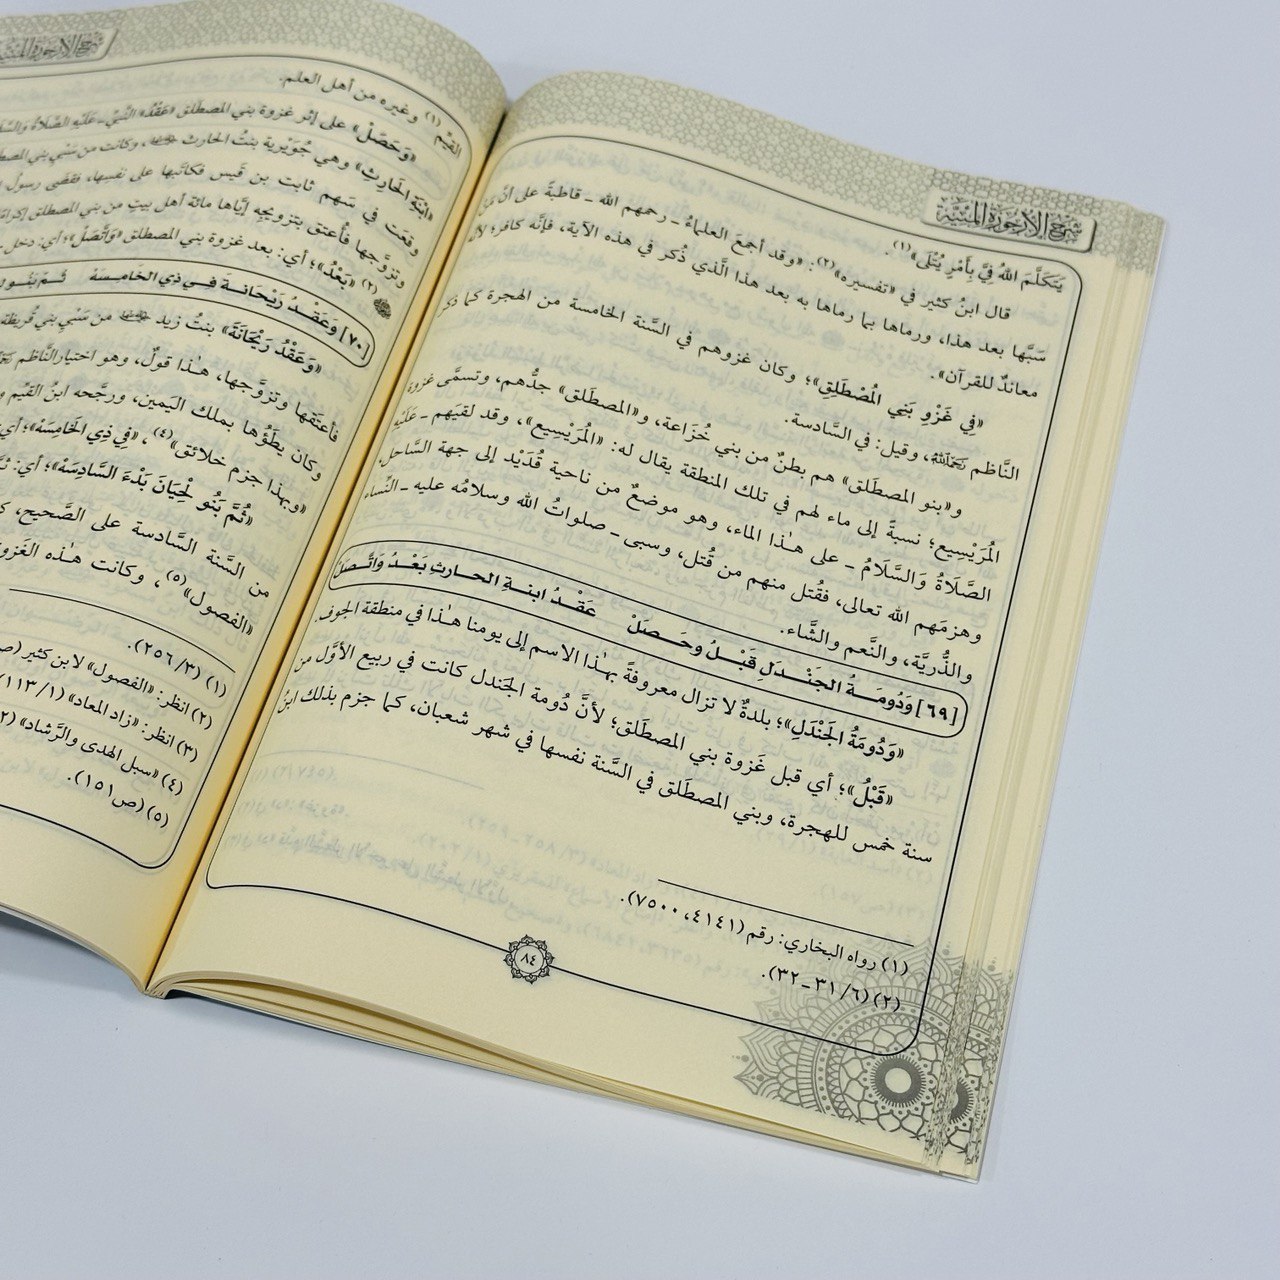 شرح الأرجوزة المئية
يَتَكَلَّمَ اللهُ فِيَّ بِأَمْرٍ يُتْلَى»(١).
قال ابنُ كثير في «تفسيره»(٢): «وقد أجمعَ العلماءُ ـ رحمهم الله ـ قاطبةً على أنَّ مَنْ
سَبَّها بعد هذا، ورماها بما رماها به بعد هذا الَّذي ذُكر في هذه الآية، فإنَّه كافر؛ لأنَّه
معاندٌ للقرآن».
«فِي غَزْوِ بَنِي الْمُصْطَلِقِ»؛ وكان غزوهم في السَّنة الخامسة من الهجرة كما ذكر
النَّاظم رَحِمَهُ اللَّهُ، وقيل: في السَّادسة.
و«بنو المصطَلق» هم بطنٌ من بني خُزَاعة، و«المصطلق» جدُّهم، وتسمَّى غزوة
المُرَيْسِيع؛ نسبةً إلى ماء لهم في تلك المنطقة يقال له: «المُرَيْسِيع»، وقد لقيَهم ـ عَلَيْهِ
الصَّلَاةُ وَالسَّلَامُ ـ على هـٰذا الماء، وهو موضعٌ من ناحية قُدَيْد إلى جهة السَّاحل،
وهزمَهم الله تعالى، فقُتل منهم من قُتل، وسبى ـ صلواتُ الله وسلامُه عليه ـ النِّساء
والذُّريَّة، والنَّعم والشَّاء.
[٦٩] وَدُومَـةُ الجَنْدَلِ قَبْـلُ وحَـصَـلْ عَقْـدُ ابنةِ الحـارثِ بَعْـدُ وَاتَّـصَلْ
«وَدُومَةُ الْجَنْدَلِ»؛ بلدةٌ لا تزال معروفةً بهـٰذا الاسم إلى يومنا هـٰذا في منطقة الجوف.
«قَبْلُ»؛ أي قبل غَزوة بني المصطَلق؛ لأنَّ دُومة الجَندل كانت في ربيع الأوَّل من
سنة خمس للهجرة، وبني المصطَلق في السَّنة نفسها في شهر شعبان، كما جزم بذلك ابنُ
(١) رواه البخاري: رقم (٤١٤١، ٧٥٠٠).
(٢) (٦/ ٣١ ـ ٣٢).
٨٤
شرح الأرجوزة المئية
القيِّم(١) وغيره من أهل العلم.
«وَحَصَلْ» على إثر غزوة بني المصطَلق «عَقْدُ» النَّبيِّ ـ عَلَيْهِ الصَّلَاةُ وَالسَّلَامُ
«ابْنَةِ الْحَارِثِ» وهي جُوَيْرية بنتُ الحارث، وكانت من سَبْي بني المصطلق
وقعَت في سَهم ثابت بن قَيس فكاتَبها على نفسِها، فقضى رسول
وتزوَّجها فأعتق بتزويجه إيَّاها مائة أهل بيتٍ من بني المصطلق إكرامًا
(٢) «بَعْدُ»؛ أي: بعد غزوة بني المصطلق «وَاتَّصَلْ»؛ أي: دخل
[٧٠] وَعَقْـدُ رَيْحَانَـةَ فـي ذِي الخَامِـسَهْ ثُـمَّ بَنُـو
«وَعَقْدُ رَيْحَانَةَ» بنتُ زيد من سَبْي بني قُريظة
فأعتَقها وتزوَّجها، هـٰذا قولٌ، وهو اختيار النَّاظم
وكان يطَؤُها بملك اليَمين، ورجَّحه ابنُ القيِّم
«وبهذا جزم خلائق»(٤)، «فِي ذِي الْخَامِسَهْ»؛
«ثُمَّ بَنُو لِحْيَانَ بَدْءَ السَّادِسَهْ»؛ أي:
من السَّنة السَّادسة على الصَّحيح،
«الفصول»(٥)، وكانت هـٰذه الغَزوة
(١) (٣/ ٢٥٦).
(٢) انظر: «الفصول» لابن كثير
(٣) انظر: «زاد المعاد» (١/ ١١٣)
(٤) «سبل الهدى والرَّشاد»
(٥) (ص١٥١).